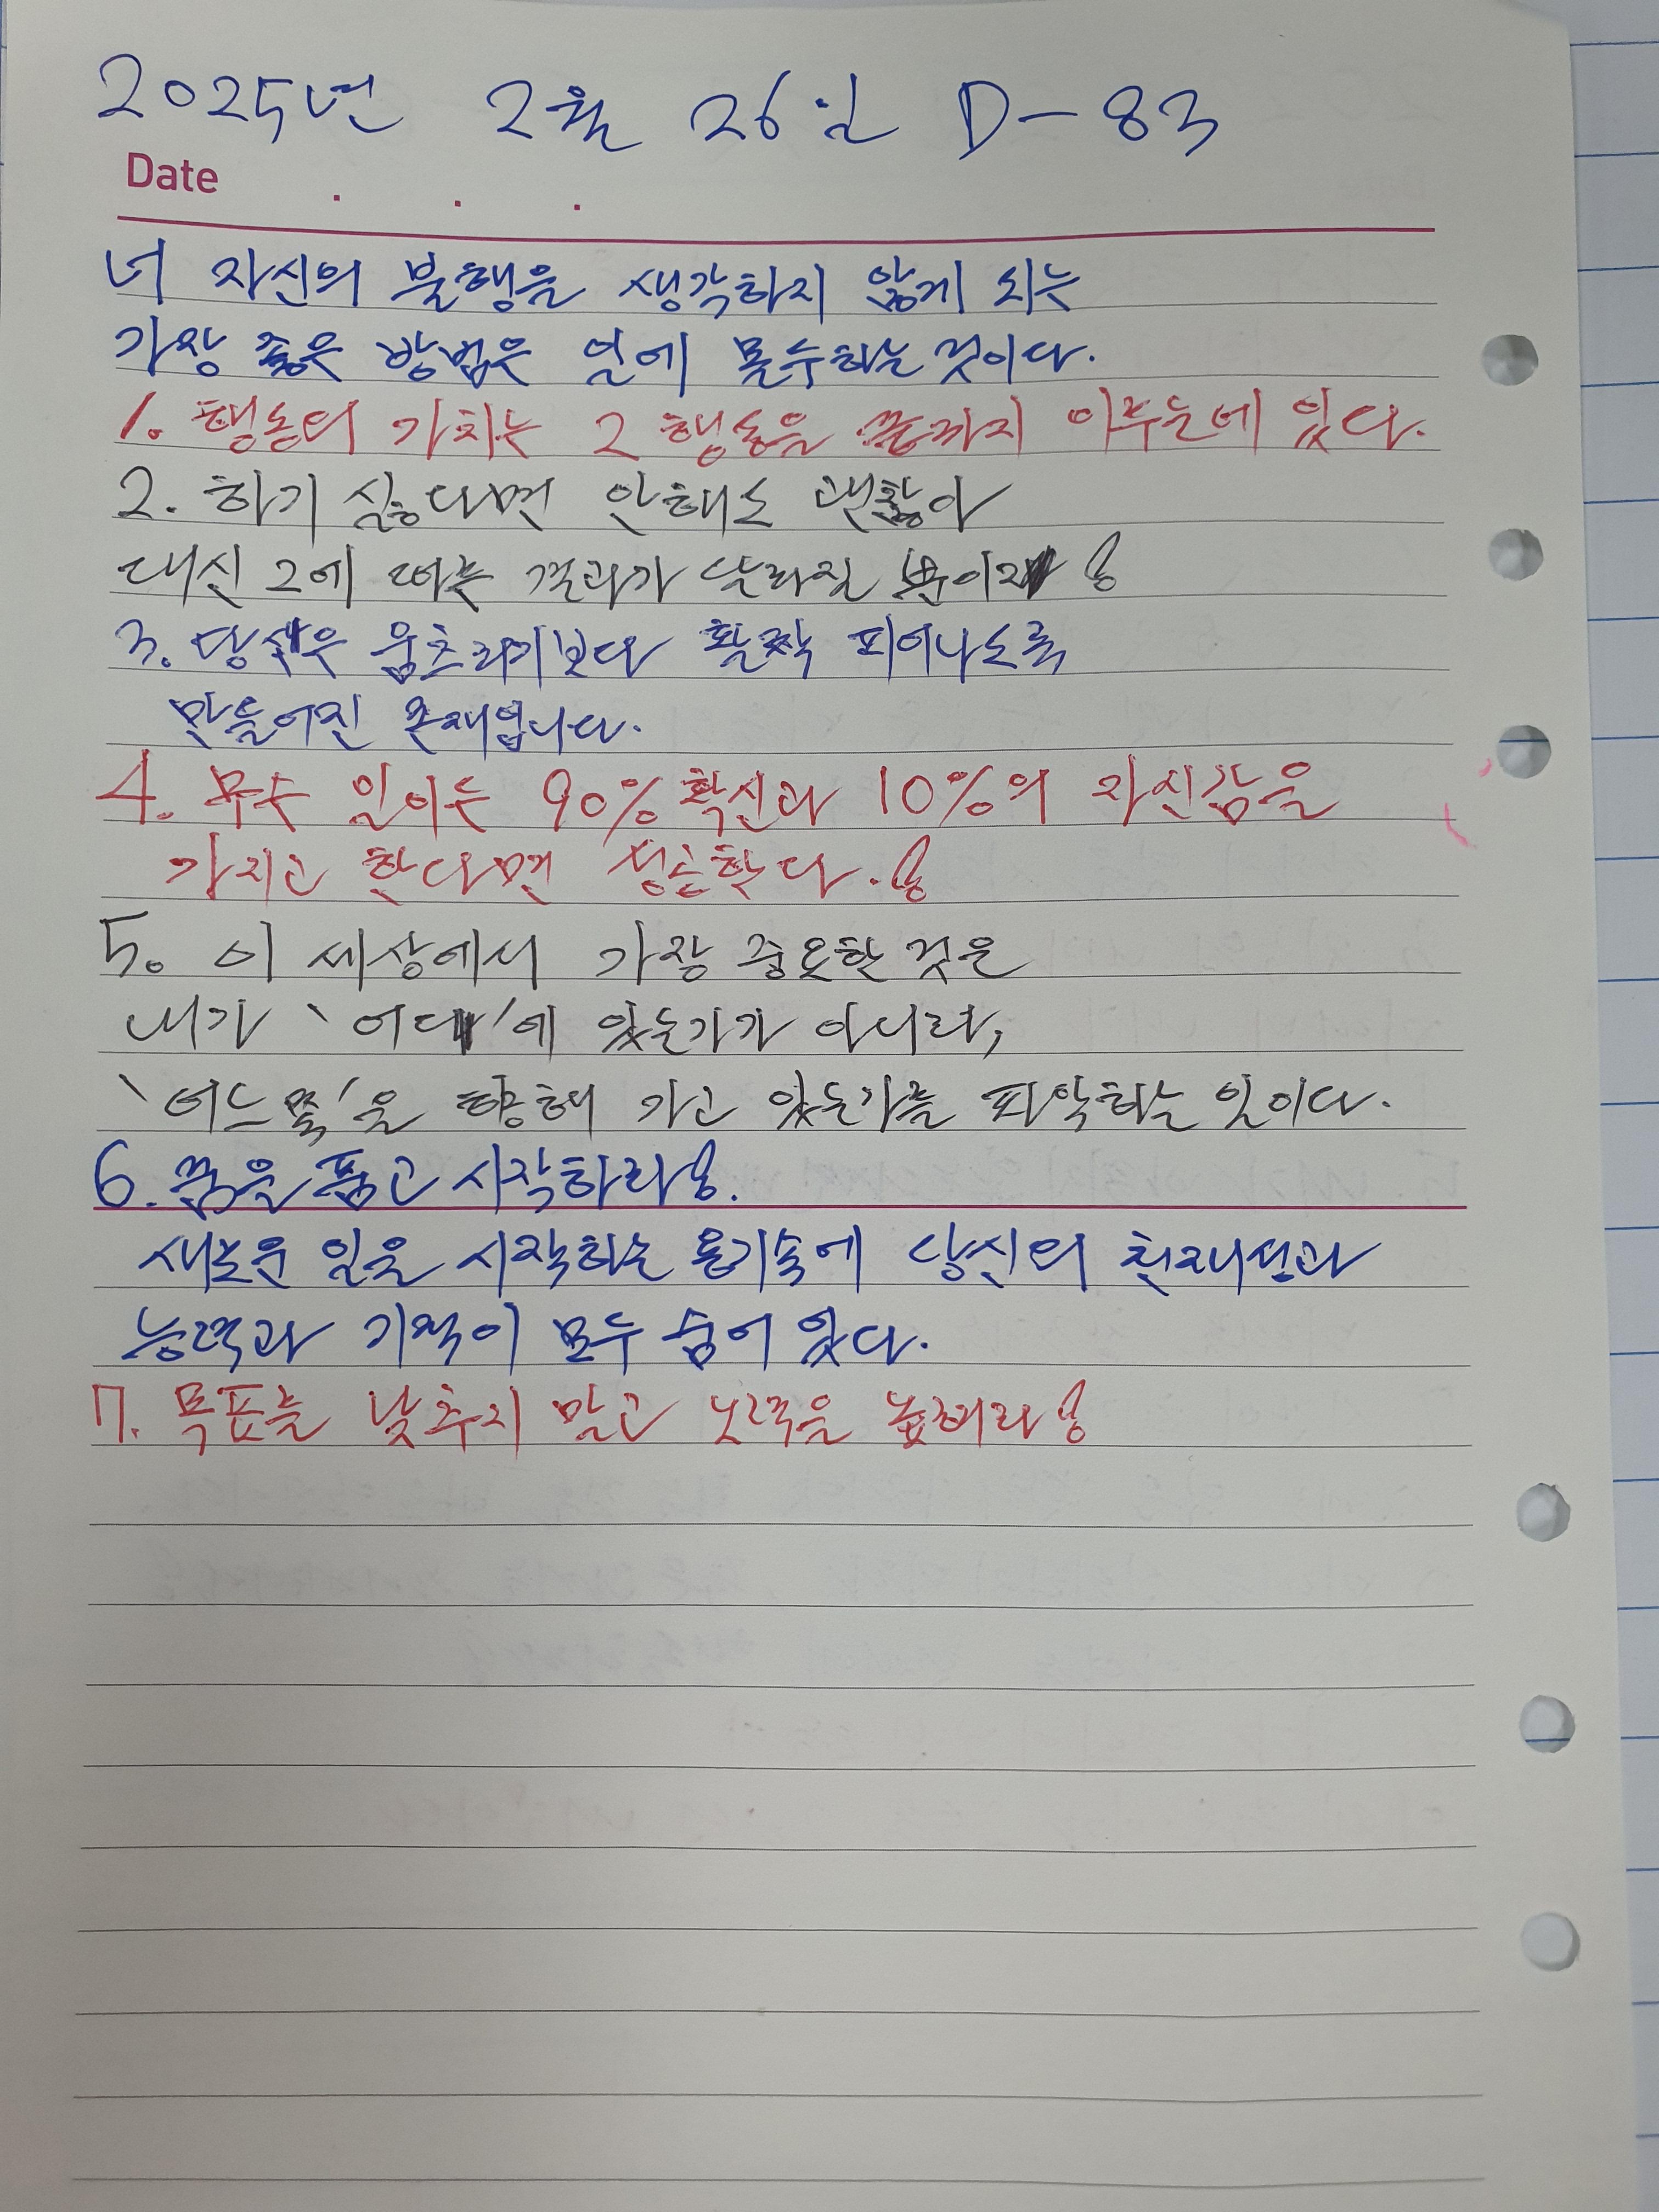 2025년 2월 26일 D-83
Date . . .
너 자신의 불행을 생각하지 않게 되는
가장 좋은 방법은 일에 몰두하는 것이다.
1. 행동의 가치는 그 행동을 끝까지 이루는데 있다.
2. 하기 싫다면 안해도 괜찮아
대신 그에 따른 결과가 달라질 뿐이지!
3. 당신은 움츠리기보다 활짝 피어나도록
만들어진 존재입니다.
4. 모든 일에는 90% 확신과 10%의 자신감을
가지고 한다면 성공한다.!
5. 이 세상에서 가장 중요한 것은
내가 '어디'에 있는가가 아니라,
'어느쪽'을 향해 가고 있는가를 파악하는 일이다.
6. 꿈을 품고 시작하라!.
새로운 일을 시작하는 용기속에 당신의 천재성과
능력과 기적이 모두 숨어 있다.
7. 목표를 낮추지 말고 노력을 높혀라!